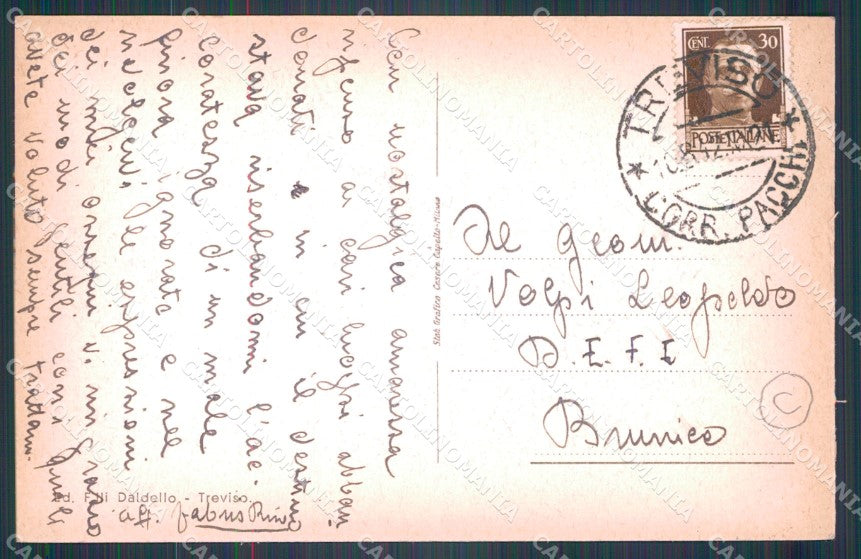 Con nostalgica amarezza
ripenso ai cari luoghi abban
donati e in cui il destino
stava riserbandomi l'ac
coratezza di un male
finora ignorato e nel
volgervi le espressioni
dei miei ossequi vi ringrazio
dei modi gentili con i quali
avete voluto sempre trattarmi
aff.
Ed. F.lli Daldello - Treviso.
Stab. Grafico Cesare Capello - Milano
CENT. 30
POSTE ITALIANE
TREVISO
CORR. PACCHI
Al Geom.
Volpi Leopoldo
D.E.F.E
Brunico
C
CARTOLINOMANIA